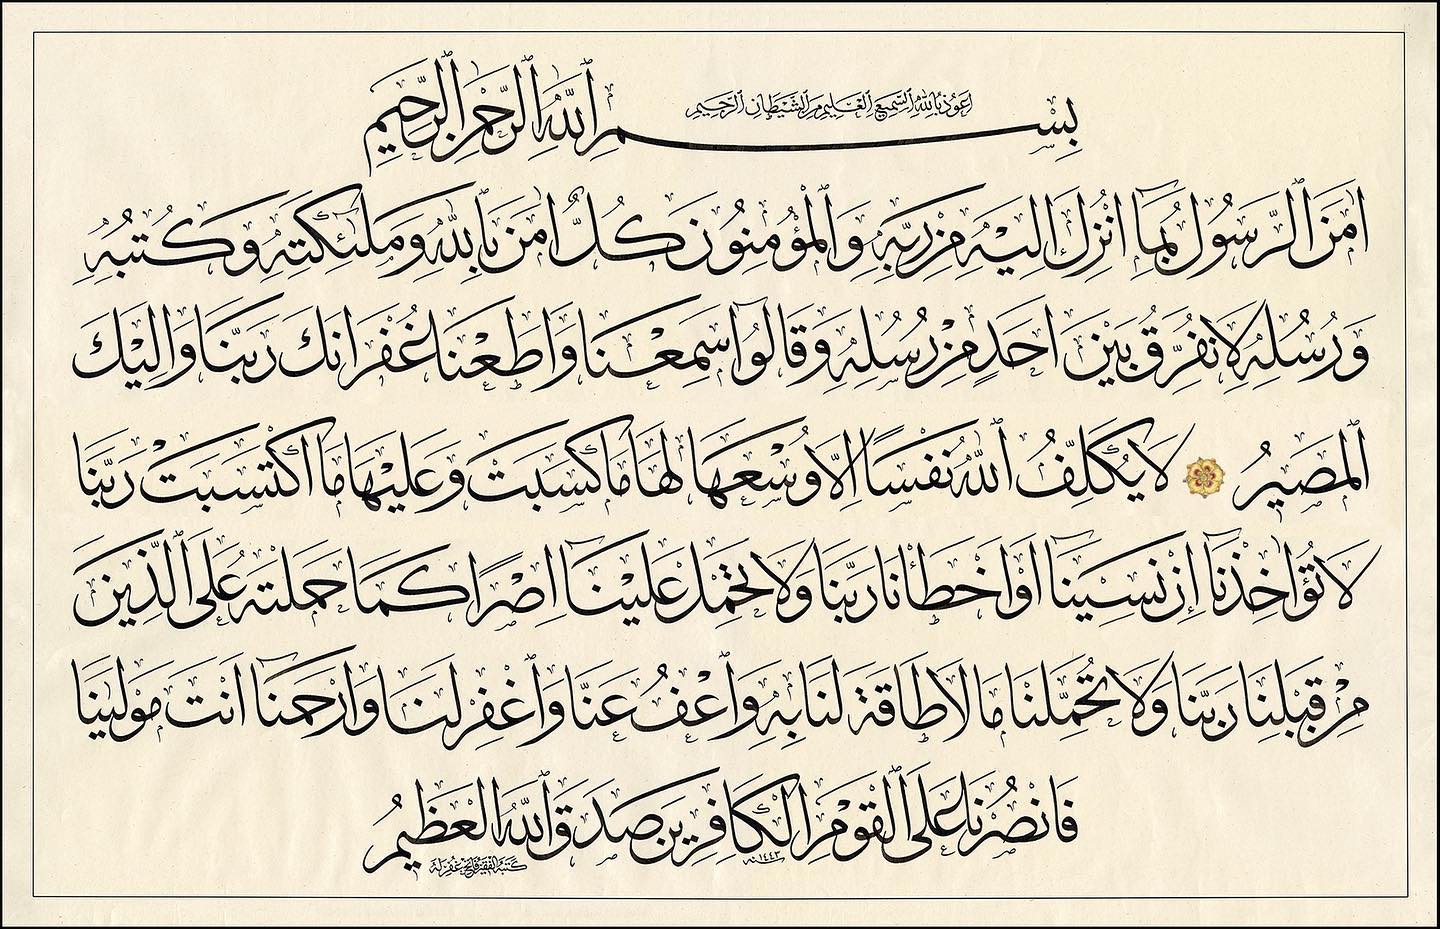 اعوذ بالله السميع العليم من الشيطان الرجيم
بِسْمِ ٱللّٰهِ ٱلرَّحْمٰنِ ٱلرَّحِيمِ
اٰمَنَ ٱلرَّسُولُ بِمَٓا اُنْزِلَ اِلَيْهِ مِنْ رَبِّهٖ وَٱلْمُؤْمِنُونَ كُلٌّ اٰمَنَ بِٱللّٰهِ وَمَلٰٓئِكَتِهٖ وَكُتُبِهٖ
وَرُسُلِهٖ لَا نُفَرِّقُ بَيْنَ اَحَدٍ مِنْ رُسُلِهٖ وَقَالُوا سَمِعْنَا وَاَطَعْنَا غُفْرَانَكَ رَبَّنَا وَاِلَيْكَ
ٱلْمَصِيرُ لَا يُكَلِّفُ ٱللّٰهُ نَفْسًا اِلَّا وُسْعَهَا لَهَا مَا كَسَبَتْ وَعَلَيْهَا مَا اكْتَسَبَتْ رَبَّنَا
لَا تُؤَاخِذْنَٓا اِنْ نَسِينَٓا اَوْ اَخْطَأْنَا رَبَّنَا وَلَا تَحْمِلْ عَلَيْنَٓا اِصْرًا كَمَا حَمَلْتَهُ عَلَى ٱلَّذِينَ
مِنْ قَبْلِنَا رَبَّنَا وَلَا تُحَمِّلْنَا مَا لَا طَاقَةَ لَنَا بِهٖ وَٱعْفُ عَنَّا وَٱغْفِرْ لَنَا وَٱرْحَمْنَٓا اَنْتَ مَوْلٰينَا
فَانْصُرْنَا عَلَى ٱلْقَوْمِ الْكَافِرِينَ صَدَقَ ٱللّٰهُ الْعَظِيمُ
سنه ١٤٤٣
كتبه الفقير فاتح غفر له